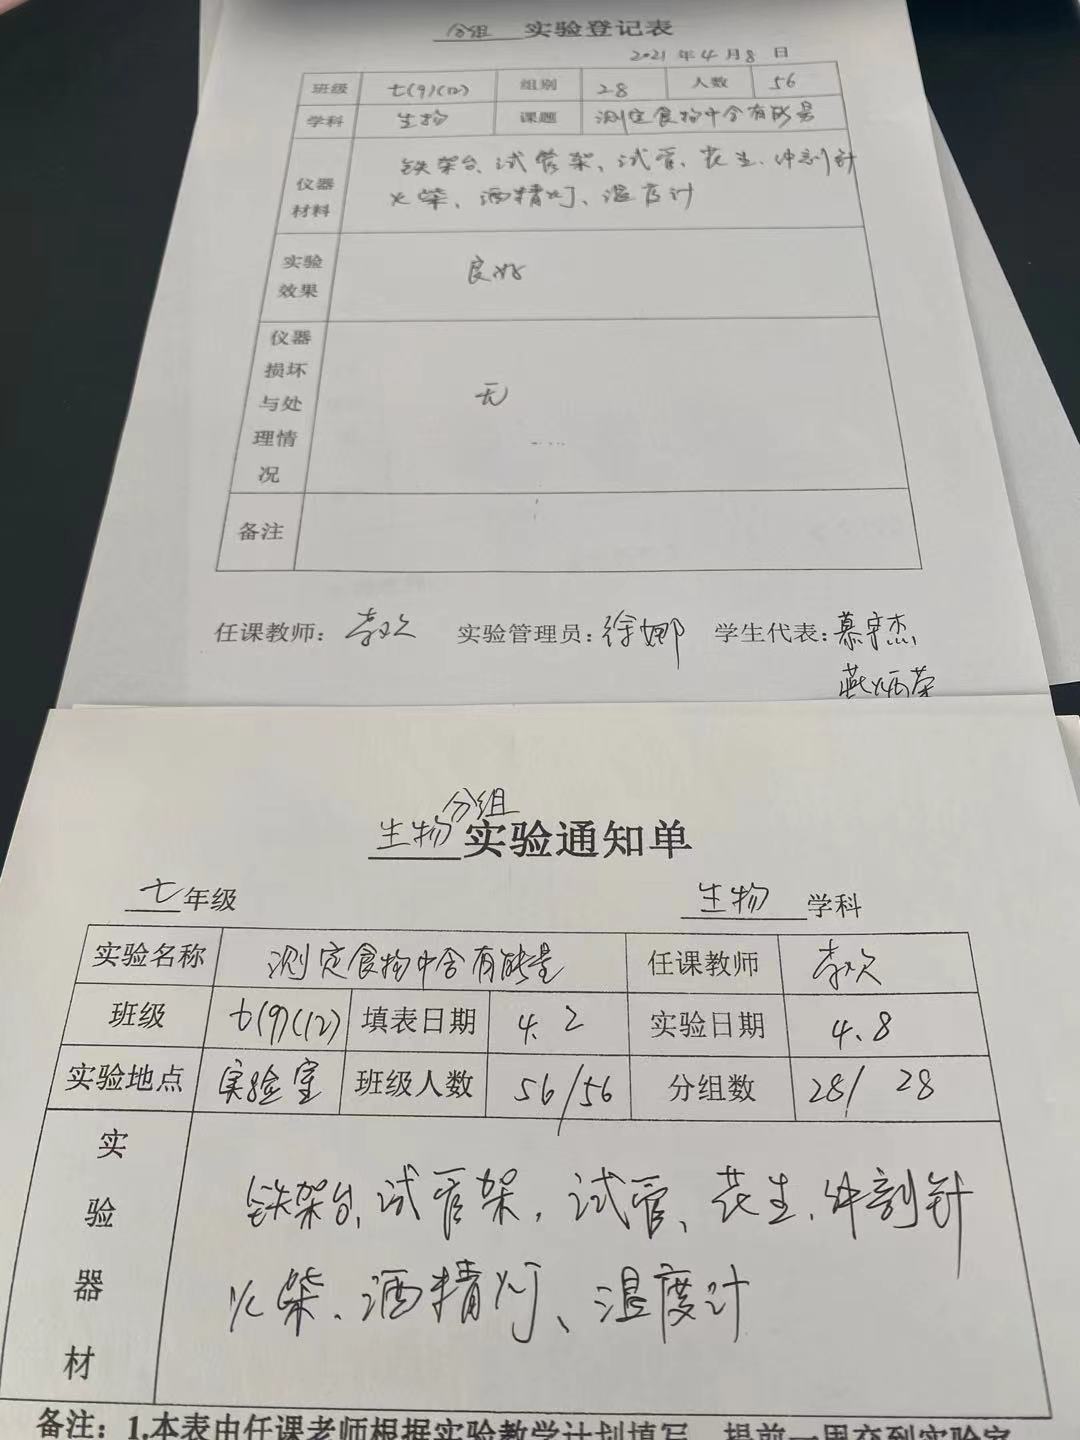 分组 实验登记表
2021年4月8日
班级 七(9)(12) 组别 28 人数 56
学科 生物 课题 测定食物中含有能量
仪器材料 铁架台、试管架、试管、花生、解剖针
火柴、酒精灯、温度计
实验效果 良好
仪器损坏与处理情况 无
备注
任课教师: 李欢 实验管理员: 徐娜 学生代表:
分组
生物 实验通知单
七年级 生物 学科
实验名称 测定食物中含有能量 任课教师 李欢
班级 七(9)(12) 填表日期 4.2 实验日期 4.8
实验地点 实验室 班级人数 56/56 分组数 28/28
实验器材 铁架台、试管架、试管、花生、解剖针
火柴、酒精灯、温度计
备注：1.本表由任课老师根据实验教学计划填写，提前一周交到实验室